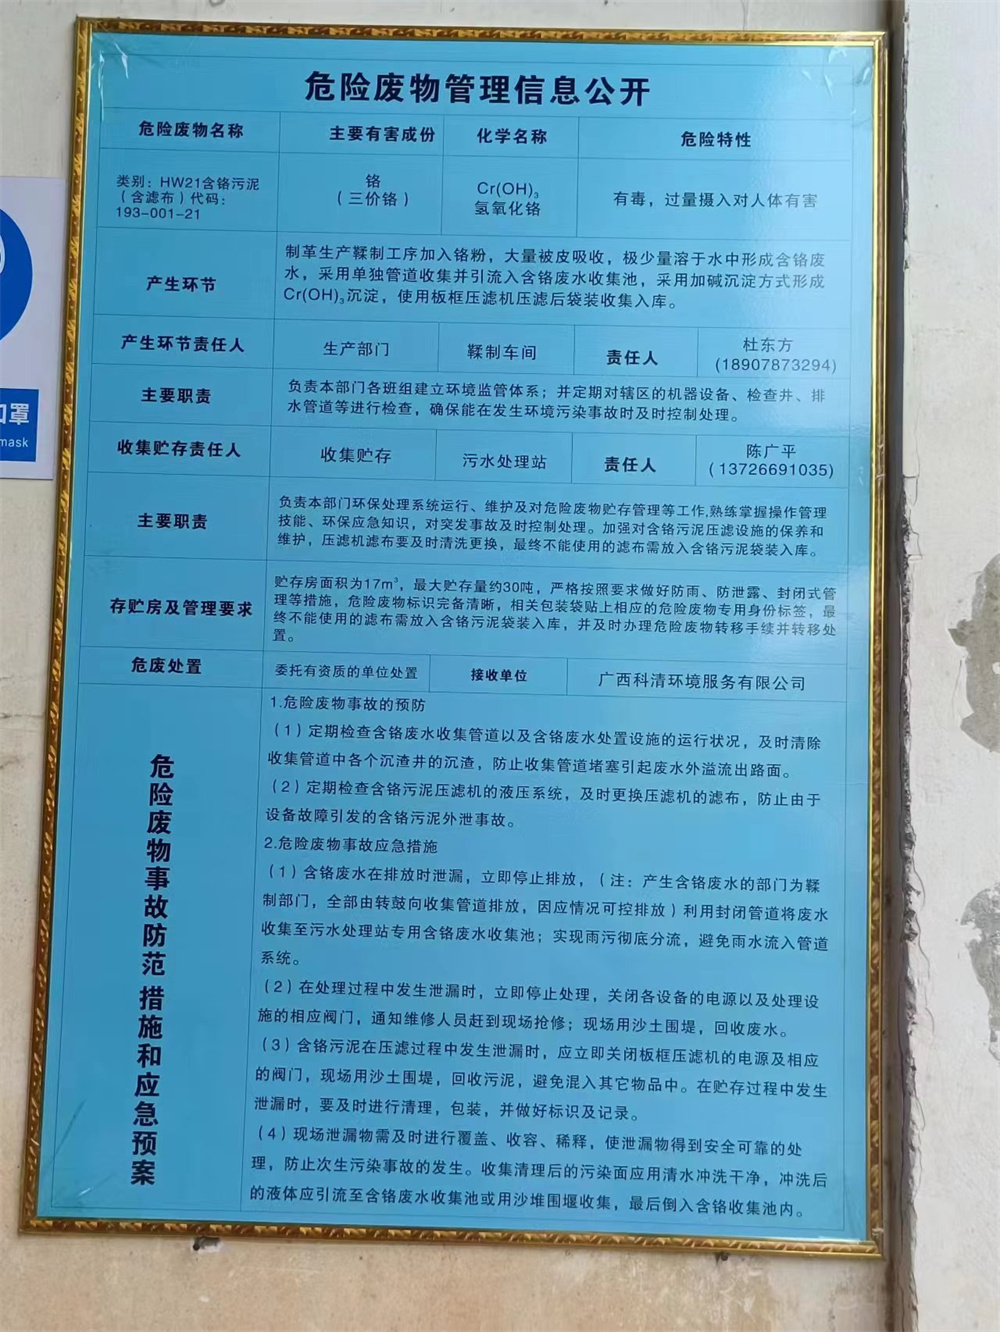 危险废物管理信息公开
危险废物名称 主要有害成份 化学名称 危险特性
类别：HW21含铬污泥
（含滤布）代码：
193-001-21
铬
（三价铬）
Cr(OH)₃
氢氧化铬
有毒，过量摄入对人体有害
产生环节
制革生产鞣制工序加入铬粉，大量被皮吸收，极少量溶于水中形成含铬废
水，采用单独管道收集并引流入含铬废水收集池，采用加碱沉淀方式形成
Cr(OH)₃沉淀，使用板框压滤机压滤后袋装收集入库。
产生环节责任人 生产部门 鞣制车间 责任人
杜东方
(18907873294)
主要职责
负责本部门各班组建立环境监管体系；并定期对辖区的机器设备、检查井、排
水管道等进行检查，确保能在发生环境污染事故时及时控制处理。
收集贮存责任人 收集贮存 污水处理站 责任人
陈广平
(13726691035)
主要职责
负责本部门环保处理系统运行、维护及对危险废物贮存管理等工作,熟练掌握操作管理
技能、环保应急知识，对突发事故及时控制处理。加强对含铬污泥压滤设施的保养和
维护，压滤机滤布要及时清洗更换，最终不能使用的滤布需放入含铬污泥袋装入库。
存贮房及管理要求
贮存房面积为17m³，最大贮存量约30吨，严格按照要求做好防雨、防泄露、封闭式管
理等措施，危险废物标识完备清晰，相关包装袋贴上相应的危险废物专用身份标签，最
终不能使用的滤布需放入含铬污泥袋装入库，并及时办理危险废物转移手续并转移处
置。
危废处置 委托有资质的单位处置 接收单位 广西科清环境服务有限公司
危险废物事故防范措施和应急预案
1.危险废物事故的预防
（1）定期检查含铬废水收集管道以及含铬废水处置设施的运行状况，及时清除
收集管道中各个沉渣井的沉渣，防止收集管道堵塞引起废水外溢流出路面。
（2）定期检查含铬污泥压滤机的液压系统，及时更换压滤机的滤布，防止由于
设备故障引发的含铬污泥外泄事故。
2.危险废物事故应急措施
（1）含铬废水在排放时泄漏，立即停止排放，（注：产生含铬废水的部门为鞣
制部门，全部由转鼓向收集管道排放，因应情况可控排放）利用封闭管道将废水
收集至污水处理站专用含铬废水收集池；实现雨污彻底分流，避免雨水流入管道
系统。
（2）在处理过程中发生泄漏时，立即停止处理，关闭各设备的电源以及处理设
施的相应阀门，通知维修人员赶到现场抢修；现场用沙土围堤，回收废水。
（3）含铬污泥在压滤过程中发生泄漏时，应立即关闭板框压滤机的电源及相应
的阀门，现场用沙土围堤，回收污泥，避免混入其它物品中。在贮存过程中发生
泄漏时，要及时进行清理，包装，并做好标识及记录。
（4）现场泄漏物需及时进行覆盖、收容、稀释，使泄漏物得到安全可靠的处
理，防止次生污染事故的发生。收集清理后的污染面应用清水冲洗干净，冲洗后
的液体应引流至含铬废水收集池或用沙堆围堰收集，最后倒入含铬收集池内。
口罩
mask